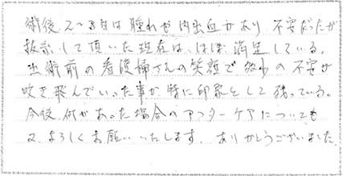 術後2〜3日は腫れや内出血があり 不安だったが
抜糸して頂いた現在は、ほぼ満足している。
手術前の看護婦さんの笑顔で 不安が
吹き飛んでいった事が特に印象として残っている。
今後、何かあった場合のアフターケアについても
又、よろしくお願いいたします。ありがとうございました。